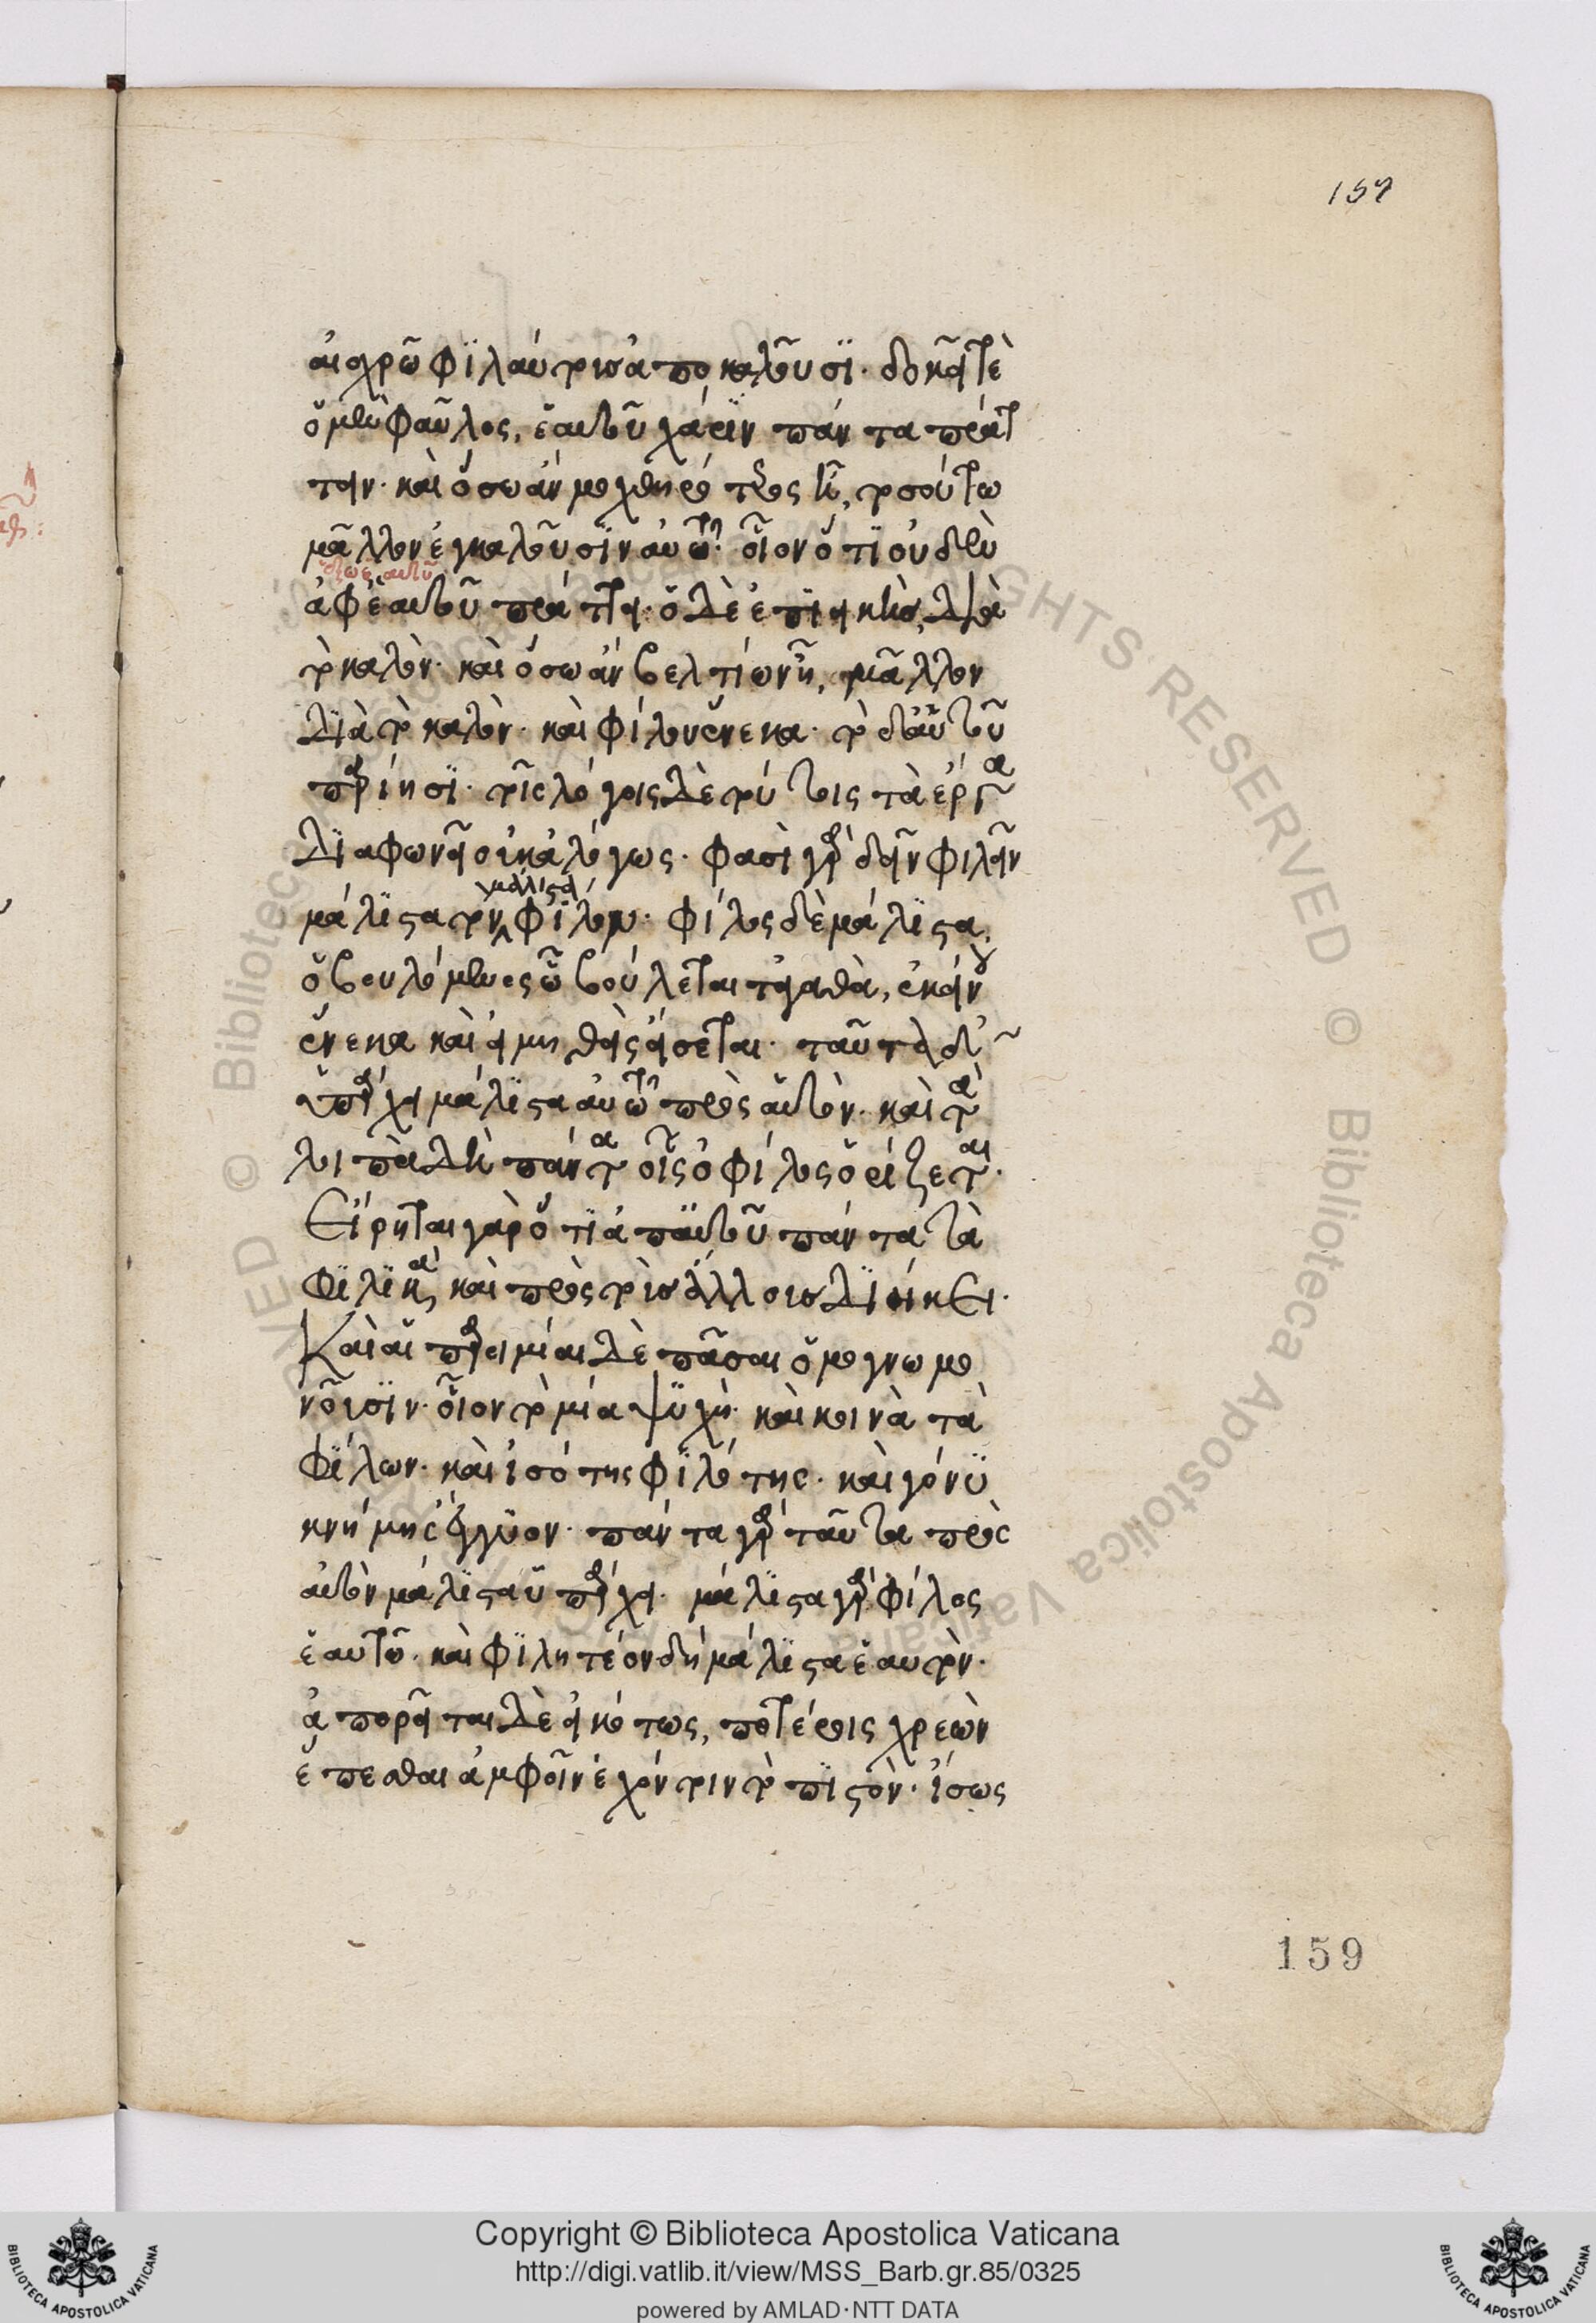 157
αἰσχρῶ φιλαύτους ἀποκαλοῦσι. δοκεῖ τὲ
ὁ μὲν φαῦλος, ἑαυτοῦ χάριν πάντα πράτ
τειν. καὶ ὅσω ἂν μοχθηρότερος ἦ, τοσούτω
μᾶλλον ἐγκαλοῦσιν αὐτῶ. οἷον ὅτι οὐδὲν
ἀφ' ἑαυτοῦ πράττει. ὁ δὲ ἐπιεικὴς, διὰ
τὸ καλόν. καὶ ὅσω ἂν βελτίων ἦ, μᾶλλον
διὰ τὸ καλόν. καὶ φίλου ἕνεκα. τὸ δ' αὑτοῦ
παρίησι. τοῖς λόγοις δὲ τούτοις τὰ ἔργα
διαφωνεῖ οὐκ ἀλόγως. φασὶ γὰρ δεῖν φιλεῖν
μάλιστα
μάλιστα τὸν φίλον. φίλος δὲ μάλιστα,
ὁ βουλόμενος ὧ βούλεται τἀγαθὰ, ἐκείνου
ἕνεκα καὶ εἰ μηθεὶς εἴσεται. ταῦτα δ'
ὑπάρχει μάλιστα αὐτῶ πρὸς αὑτόν. καὶ τὰ
λοιπὰ δὴ πάντα οἷς ὁ φίλος ὁρίζεται.
Εἴρηται γὰρ ὅτι ἀπ' αὐτοῦ πάντα τὰ
φιλικὰ καὶ πρὸς τοὺς ἄλλους διήκει.
Καὶ αἱ παροιμίαι δὲ πᾶσαι ὁμογνωμο
νοῦσιν. οἷον τὸ μία ψυχή. καὶ κοινὰ τὰ
φίλων. καὶ ἰσότης φιλότης. καὶ γόνυ
κνήμης ἔγγιον. πάντα γὰρ ταῦτα πρὸς
αὑτὸν μάλιστα ὑπάρχει. μάλιστα γὰρ φίλος
ἑαυτῶ. καὶ φιλητέον δὴ μάλιστα ἑαυτόν.
ἀπορεῖται δὲ εἰκότως, ποτέροις χρεὼν
ἕπεσθαι ἀμφοῖν ἐχόντοιν τὸ πιστόν. ἴσως
159
Copyright © Biblioteca Apostolica Vaticana
http://digi.vatlib.it/view/MSS_Barb.gr.85/0325
powered by AMLAD·NTT DATA